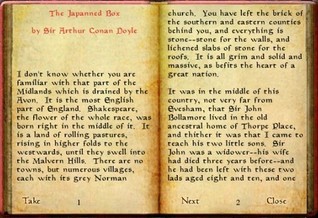 The Japanned Box
by Sir Arthur Conan Doyle
I don't know whether you are
familiar with that part of the
Midlands which is drained by the
Avon. It is the most English
part of England. Shakespeare,
the flower of the whole race, was
born right in the middle of it. It
is a land of rolling pastures,
rising in higher folds to the
westwards, until they swell into
the Malvern Hills. There are no
towns, but numerous villages,
each with its grey Norman
Take
1
church. You have left the brick of
the southern and eastern counties
behind you, and everything is
stone--stone for the walls, and
lichened slabs of stone for the
roofs. It is all grim and solid and
massive, as befits the heart of a
great nation.
It was in the middle of this
country, not very far from
Evesham, that Sir John
Bollamore lived in the old
ancestral home of Thorpe Place,
and thither it was that I came to
teach his two little sons. Sir
John was a widower--his wife
had died three years before--and
he had been left with these two
lads aged eight and ten, and one
Next
2
Close